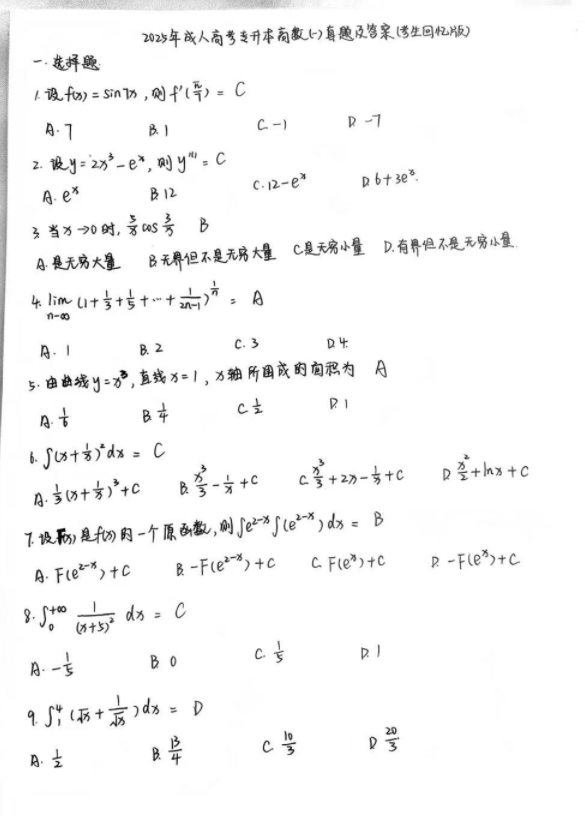 2025年成人高考专升本高数(一)真题及答案(考生回忆版)
一. 选择题
1. 设f(x) = sin7x, 则f'(π/7) = C
A. 7 B. 1 C. -1 D. -7
2. 设y = 2x³ - eˣ, 则y''' = C
A. eˣ B. 12 C. 12-eˣ D. 6+3eˣ.
3. 当x→0时, 5/x cos 3/x B
A. 是无穷大量 B. 无界但不是无穷大量 C. 是无穷小量 D. 有界但不是无穷小量.
4. lim n→∞ (1+1/3+1/5+…+1/(2n-1))^(1/n) = A
A. 1 B. 2 C. 3 D. 4.
5. 由曲线y=x³, 直线x=1, x轴所围成的面积为 A
A. 1/6 B. 1/4 C. 1/2 D. 1
6. ∫(x+1/x)²dx = C
A. 1/3(x+1/x)³+C B. x³/3 - 1/x + C C. x³/3 + 2x - 1/x + C D. x²/2 + lnx + C
7. 设F(x)是f(x)的一个原函数, 则∫e^(2-x) f(e^(2-x)) dx = B
A. F(e^(2-x))+C B. -F(e^(2-x))+C C. F(eˣ)+C D. -F(eˣ)+C
8. ∫₀^+∞ 1/(x+5)² dx = C
A. -1/5 B. 0 C. 1/5 D. 1
9. ∫₁⁴ (√x + 1/√x)dx = D
A. 1/2 B. 13/4 C. 10/3 D. 20/3